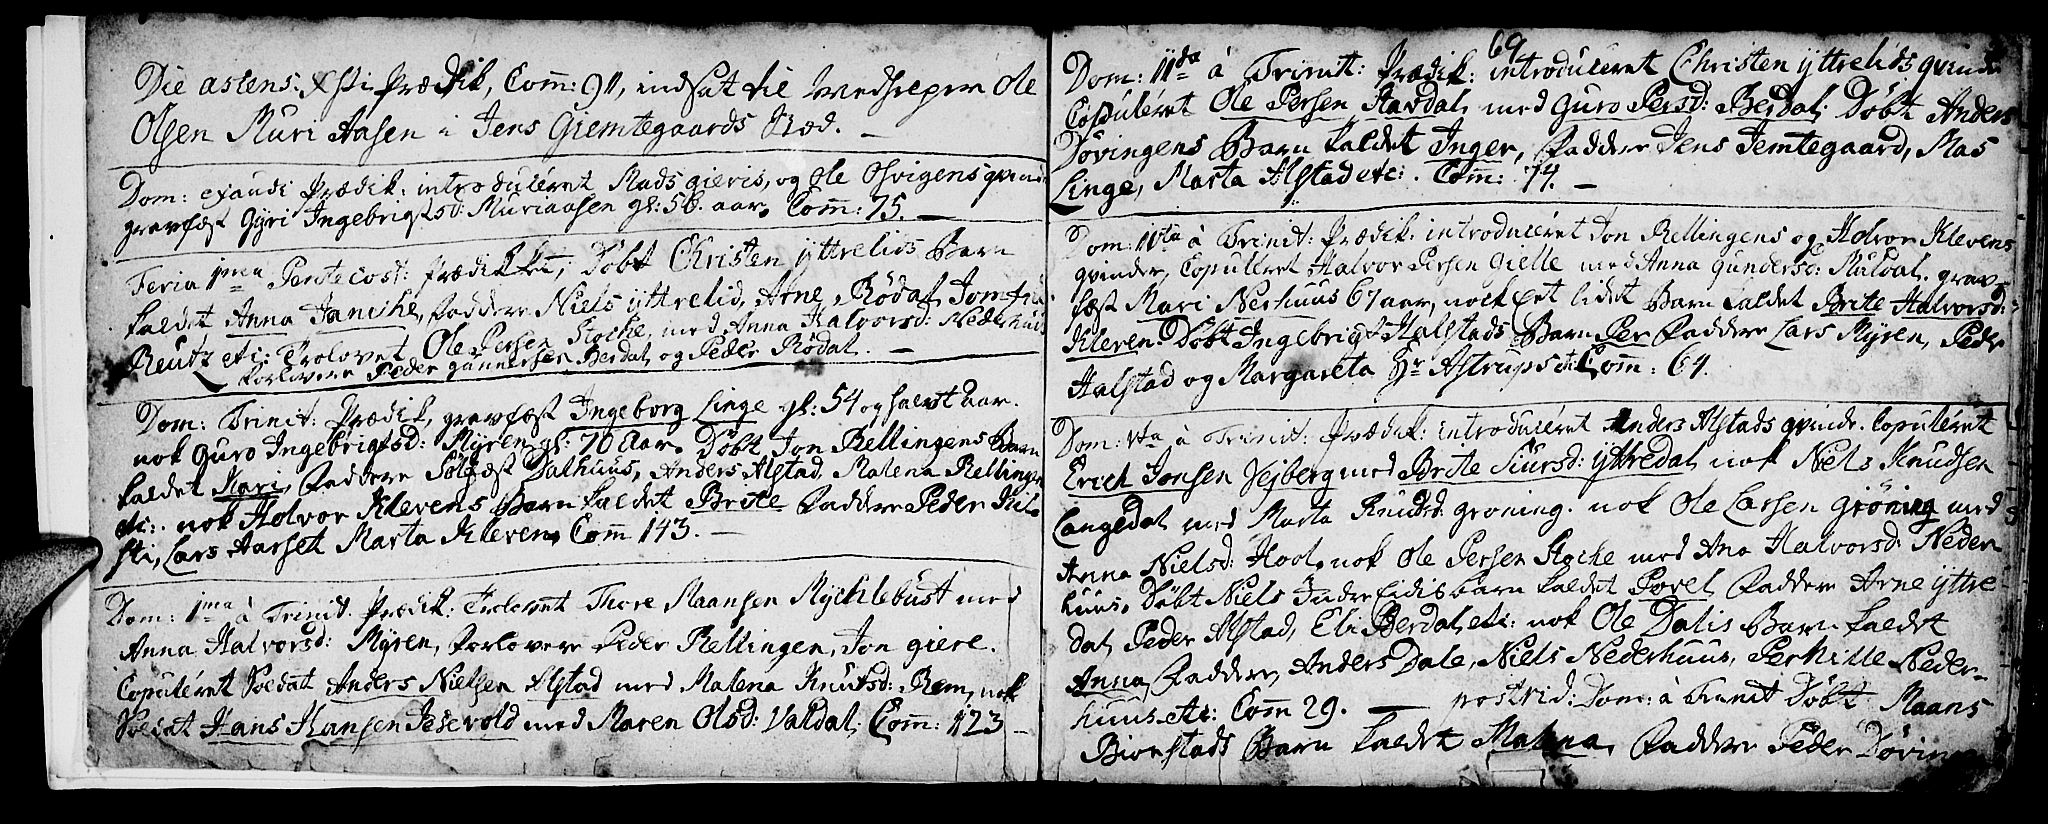 Die ascens: Xsti Prædik, Com̄: 911, indsat til Medhielpere Ole
Olsen Muri Aasen i Jens Giemtegaards Stæd. —
Dom: exaudi Prædik: introduceret Mads gieris, og Ole Osvigens qvinder
gravfæst Gyri Ingebrigtsd: Muriaasen gl: 56. aar. Com̄: 75. —
Feria 1ma Pentecost: prædik: Döbt Christen yttrelids Barn
kaldet Anna Janicke, Faddere Niels yttrelid, Arne Rödal, Jomfru
Reutz etc: Trolovet Ole Persen Stocke, med Anna Halvorsd: Nederhuus
Forlovere Peder gunnersen Berdal og Peder Rödal. —
Dom: Trinit: Prædik, gravfæst Ingeborg Linge gl: 54 og halvt aar.
nok Guro Ingebrigtsd: Myren gl: 70 Aar. Döbt Jon Rellingens Barn
kaldet Kari, Faddere Sölfæst Dalhuus, Anders Alstad, Malena Rellingen
etc: nok Halvor Klevens Barn kaldet Brite Faddere Peder Kil-
sti, Lars Aarset Marta Kleven, Com̄ 143. —
Dom: 1ma à Trinit. Prædik: Trolovet Thore Maansen Mycklebust med
Anna Halvorsd: Myren, Forlovere Peder Rellingen, Jon giere.
Copuleret Soldat Anders Nielsen Alstad med Malena Knutsd: Rem, nok
Soldat Hans Hansen Jesevold med Maren Olsd: Valdal, Com̄: 123 —
69
Dom: 11da à Trinit: Prædik: introduceret Christen yttrelids qvinde
Copuleret Ole Persen Aasdal, med Guro Persd: Berdal. Döbt Anders
Dövingens Barn kaldet Inger, Faddere Jens Jemtegaard, Mas
Linge, Marta Alstad etc: Com̄: 74. —
Dom: 10ta à Trinit: Prædik: introduceret Jon Rellingens og Halvor Klevens
qvinder, Copuleret Halvor Persen Gielle med Anna Gundersd: Muldal. grav-
fæst Mari Nerhuus 67 aar, nock Eet lidet Barn kaldet Brite Halvorsd:
Kleven. Döbt Ingebrigt Halstads Barn Per Faddere Lars Myren, Peder
Halstad og Margareta Hr Astrups etc Com̄: 64.
Dom: Vta à Trinit: Prædik: introduceret Anders Alstads qvinde. Copuleret
Erich Jonsen Vejberg med Brite Siursd: yttredal, nok Niels Knudsen
Langedal med Marta Knudsd: gröning. nok Ole Larsen Gröning med
Anna Nielsd: Hool, nok Ole Persen Stocke med Ana Halvorsd: Neder
huus. Döbt Niels Indre Eidis barn kaldet Povel Faddere Arne yttre
dal, Peder Alstad, Eli Berdal, etc: nok Ole Dalis Barn kaldet
Anna, Faddere, Anders Dale, Niels Nederhuus, Pernille Neder-
huus etc: Com̄ 29. — postrid: Dom: à Trinit Döbt Maans
Biorstads Barn kaldet Malena, Faddere Peder Döving